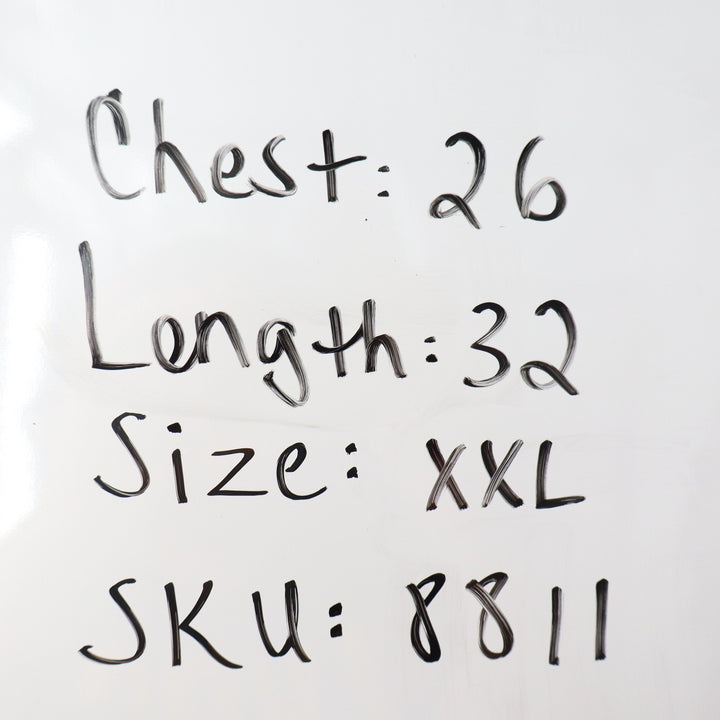 Chest: 26
Length: 32
Size: XXL
SKU: 8811